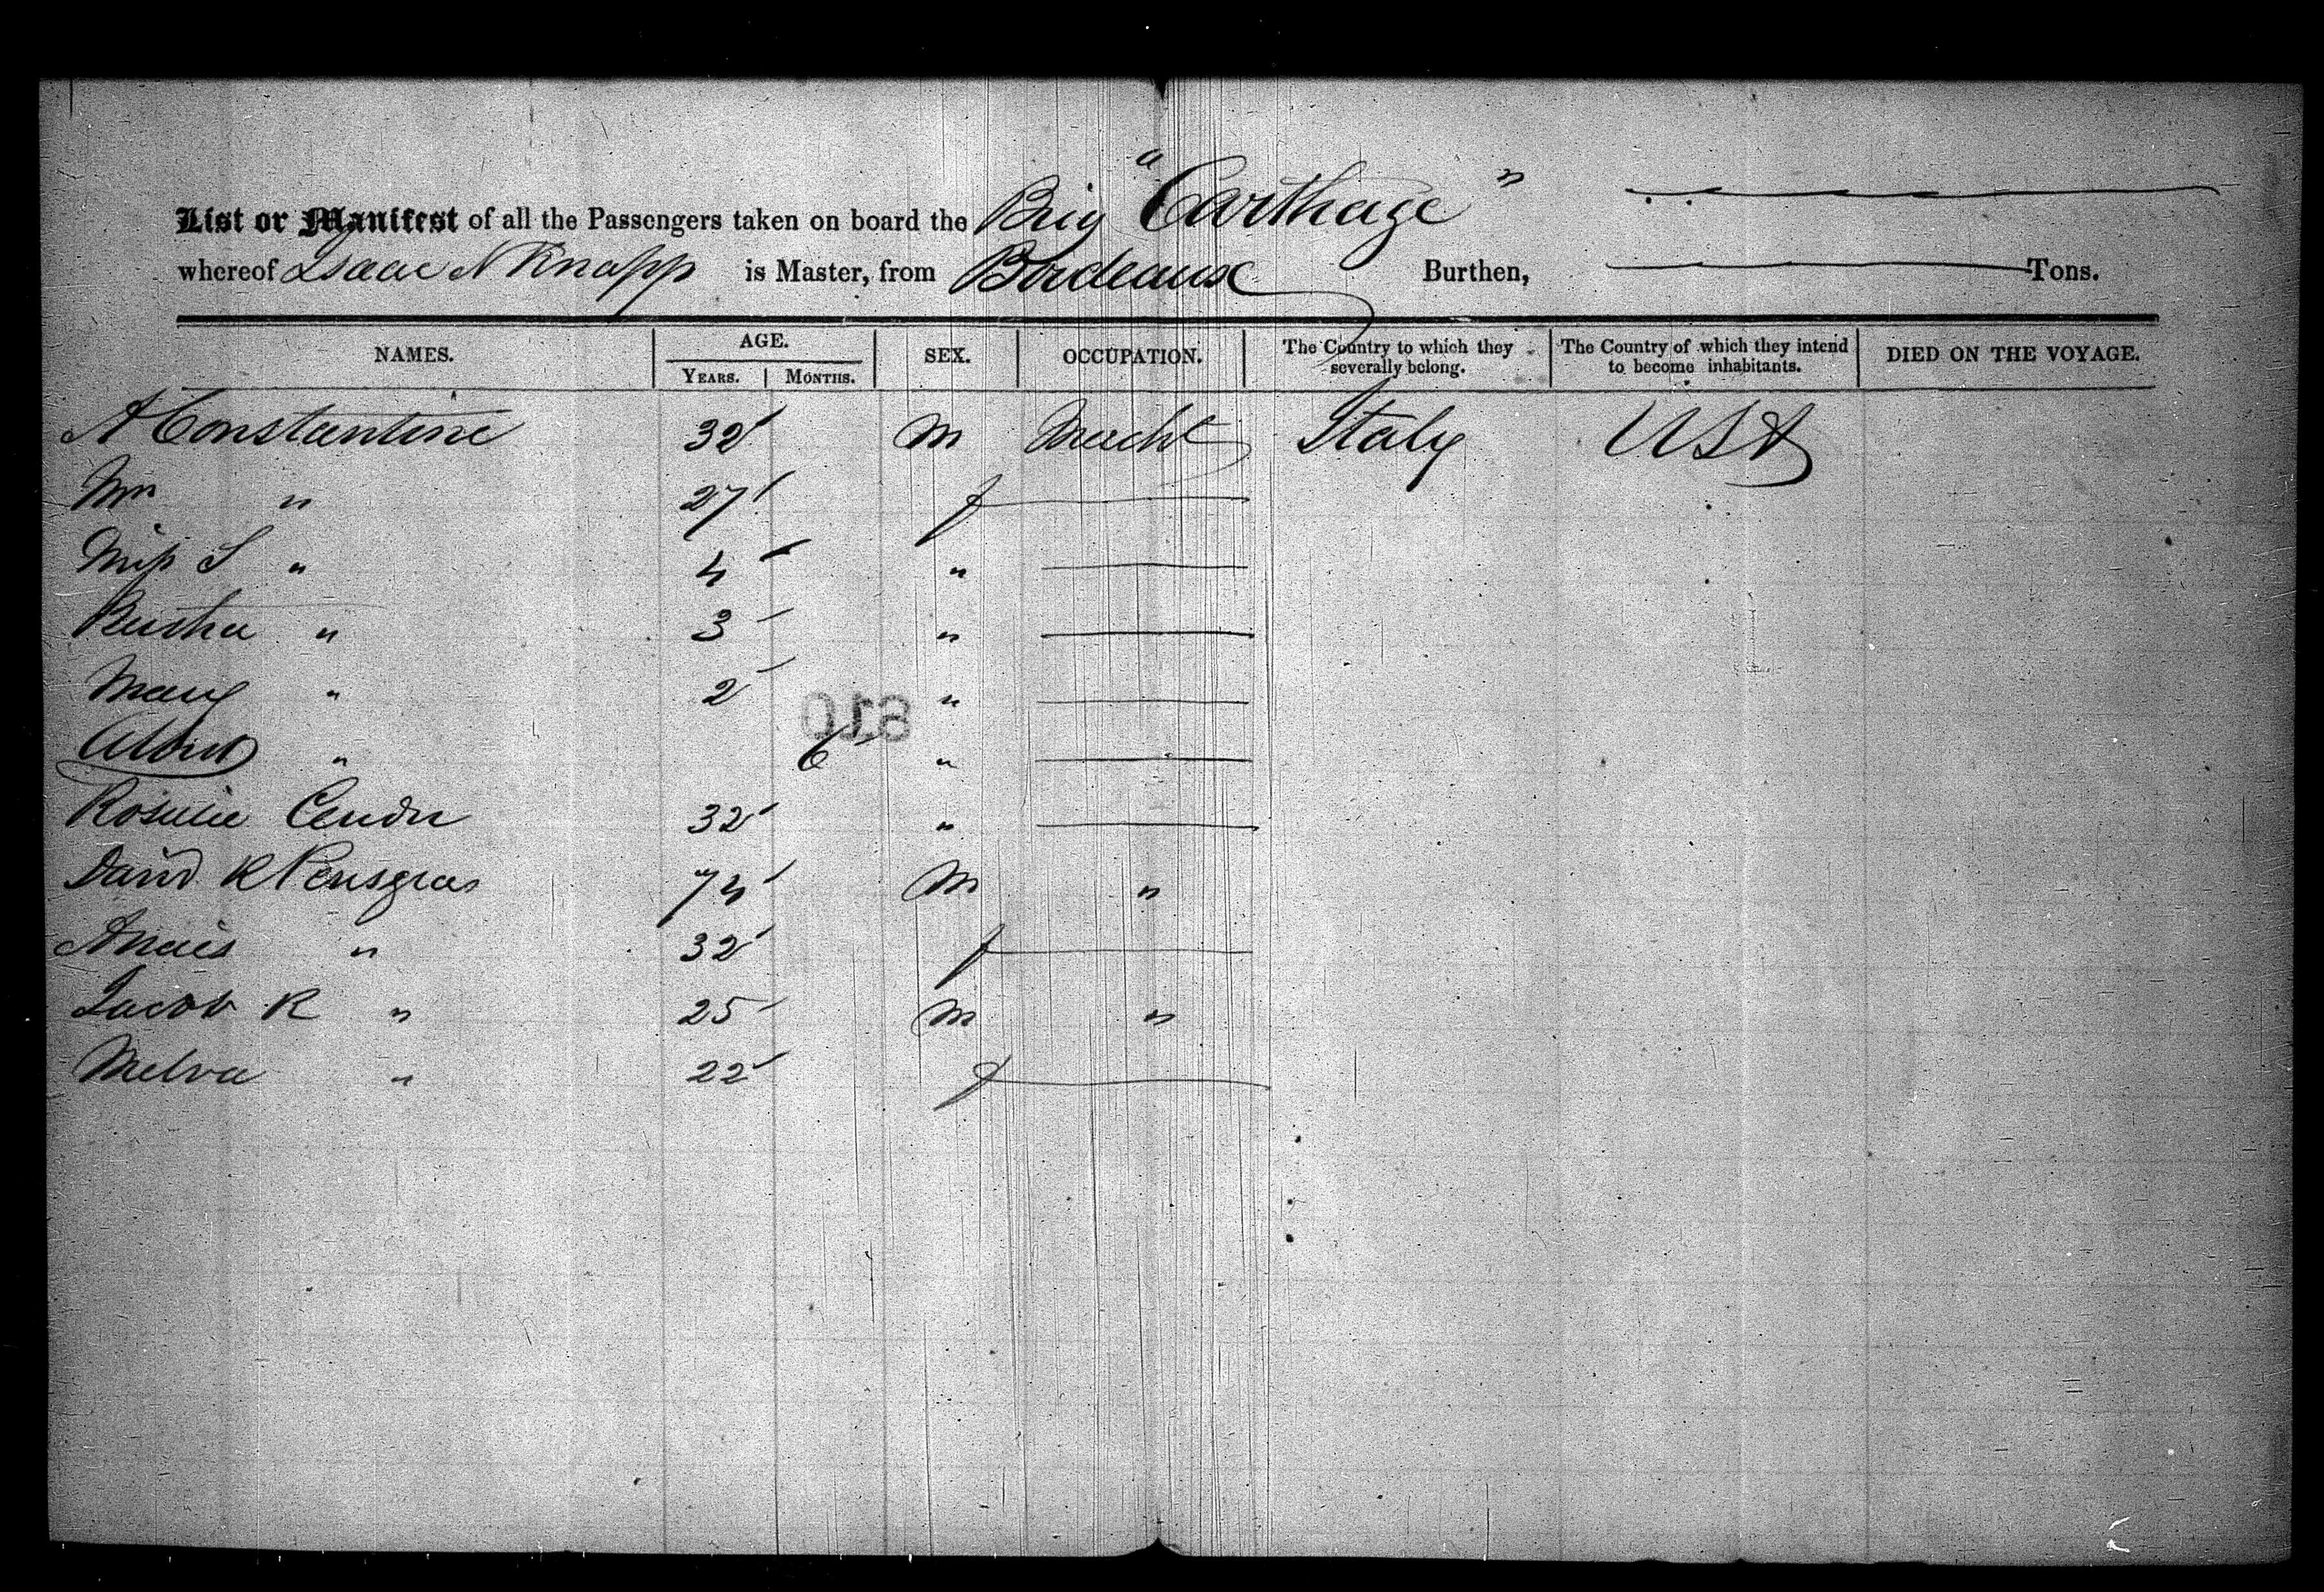 List or Manifest of all the Passengers taken on board the Brig "Carthage"
whereof Isaac N Knapp is Master, from Bordeaux Burthen, Tons.
NAMES. AGE. YEARS. MONTHS. SEX. OCCUPATION. The Country to which they severally belong. The Country of which they intend to become inhabitants. DIED ON THE VOYAGE.
A Constantine 32 M Mercht Italy USA
Mrs " 27 f
Miss S " 4 "
" 3 "
Mary " 2 "
018
Albert " 6 "
Rosalie 32 "
David R 74 M "
Anais " 32 f
Jacob R " 25 M "
Melva " 22 f